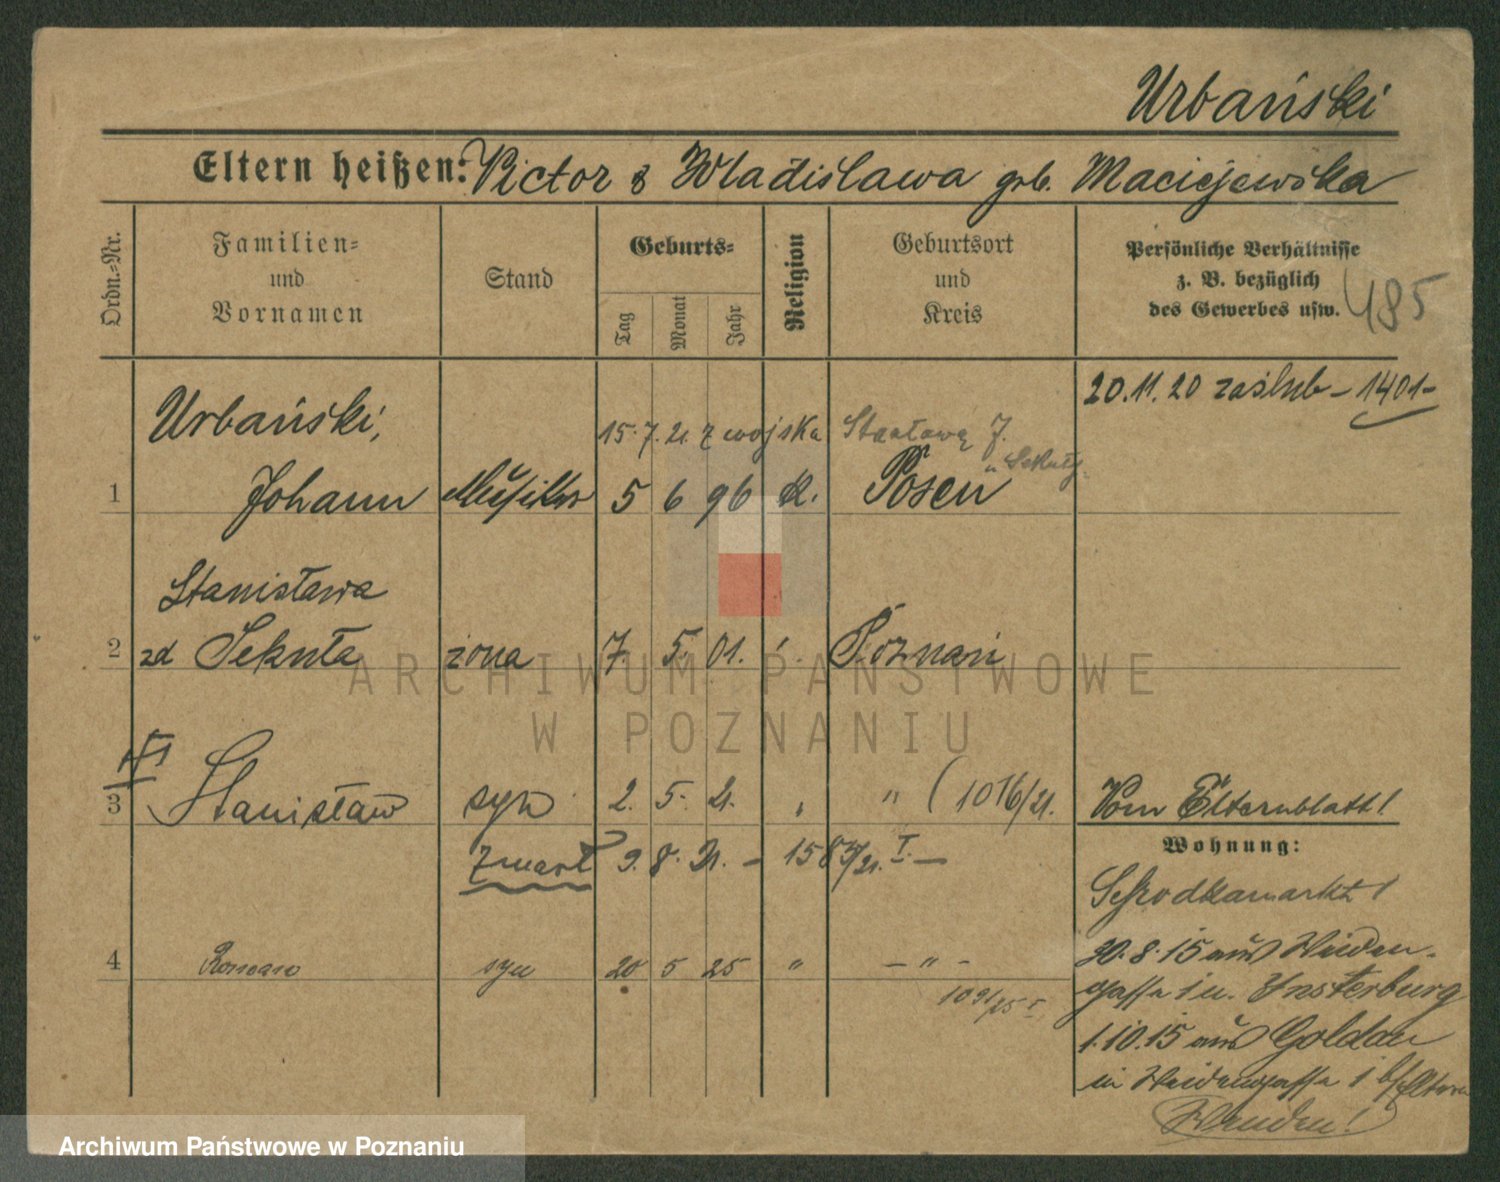 Urbański
Eltern heißen: Victor & Wladislawa geb. Maciejewska
Ordn.=Nr.
Familien=
und
Vornamen
Stand
Geburts=
Tag
Monat
Jahr
Religion
Geburtsort
und
Kreis
Persönliche Verhältnisse
z. B. bezüglich
des Gewerbes usw.
485
20.11.20 zaślub – 1401 –
Urbański,
15.7.21 z wojska
1 Johann Musiker 5 6 96 k. Posen
Stanisława
2 zd Sekuła żona 7 5. 01. Poznań
3 Stanisław syn 2. 5. 21. " (1016/21.
Vom Elternblatt!
Wohnung:
zmarł 9. 8. 21. – 1584/21. I. –
Schrodkamarkt 1
4 Roman syn 20 5 25 " – " –
1091/25 I
30.8.15 aus Weiden-
gasse 1 n. Insterburg
1.10.15 aus Goldau
in Weidengasse 1 b/Eltern
Wenden!
ARCHIWUM PAŃSTWOWE
W POZNANIU
Archiwum Państwowe w Poznaniu